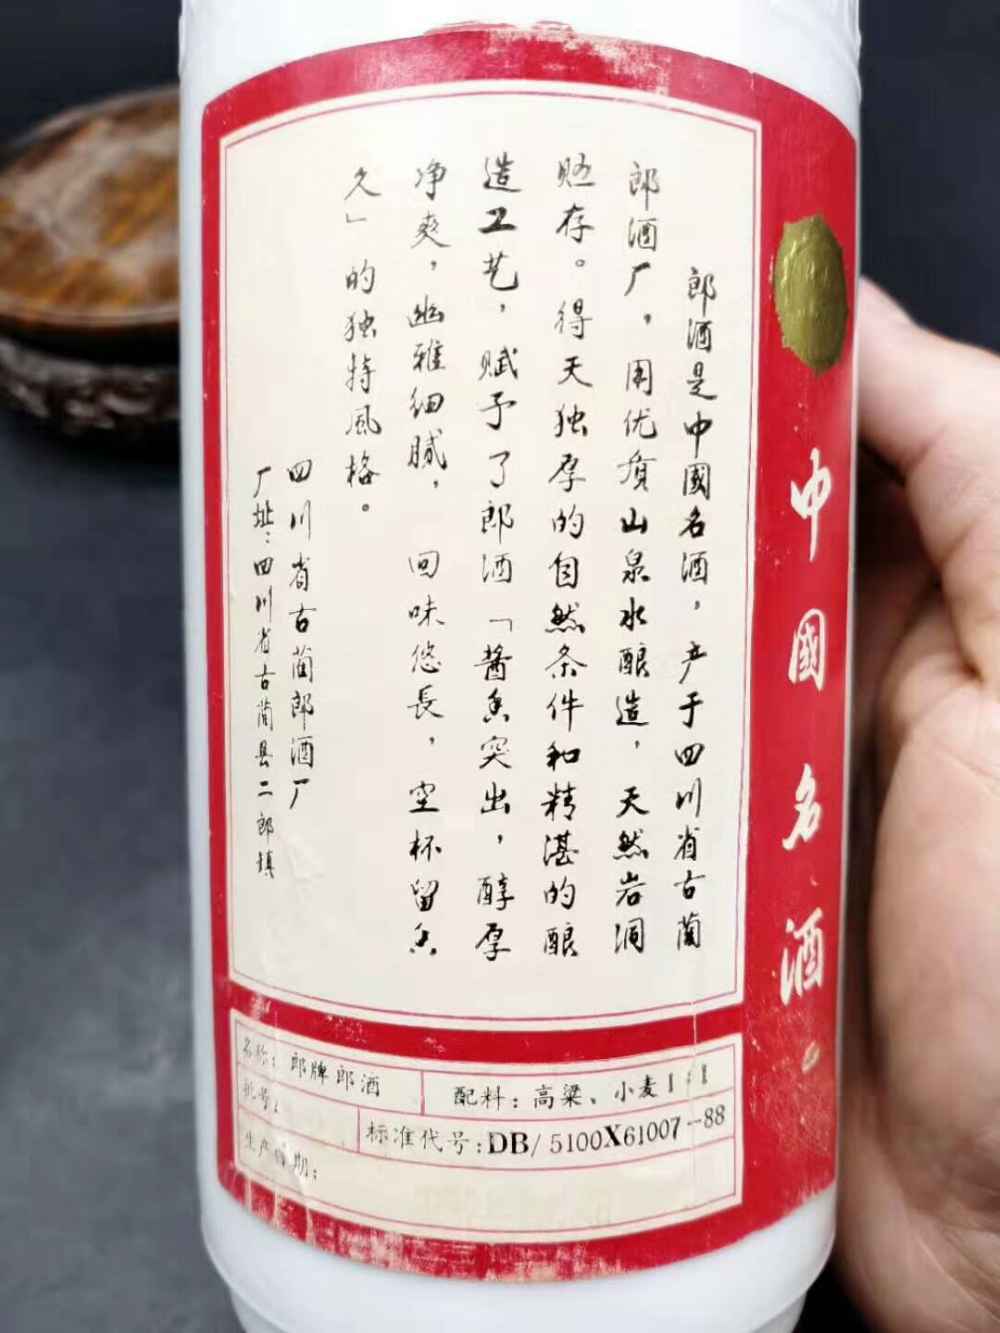 郎酒是中國名酒，产于四川省古藺
郎酒厂，用优质山泉水酿造，天然岩洞
贮存。得天独厚的自然条件和精湛的酿
造工艺，赋予了郎酒「酱香突出，醇厚
净爽，幽雅细腻，回味悠長，空杯留香
久」的独特風格。
四川省古藺郎酒厂
厂址：四川省古藺县二郎镇
中國名酒
名称：郎牌郎酒
配料：高粱、小麦
批号：
标准代号:DB/5100X61007-88
生产日期：